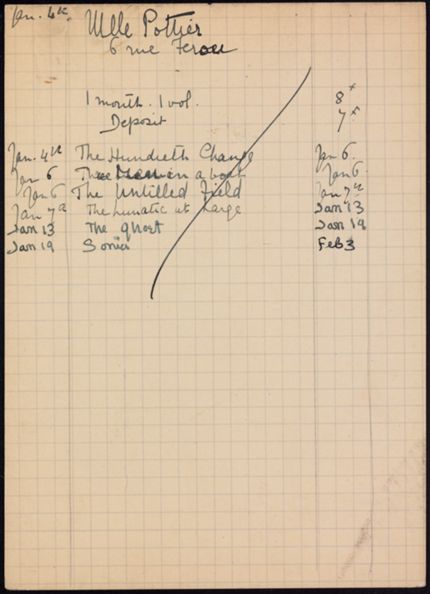 Jan. 4th Mlle Pottier
6 rue Ferou
1 month. 1 vol. 8f
Deposit 7f
Jan. 4th The Hundreth Chance Jan 6.
Jan 6 Three Men in a boat Jan 6.
Jan 6 The Untilled Field Jan 7th
Jan 7th The Lunatic at Large Jan 13
Jan 13 The ghost Jan 19
Jan 19 Sonia Feb 3